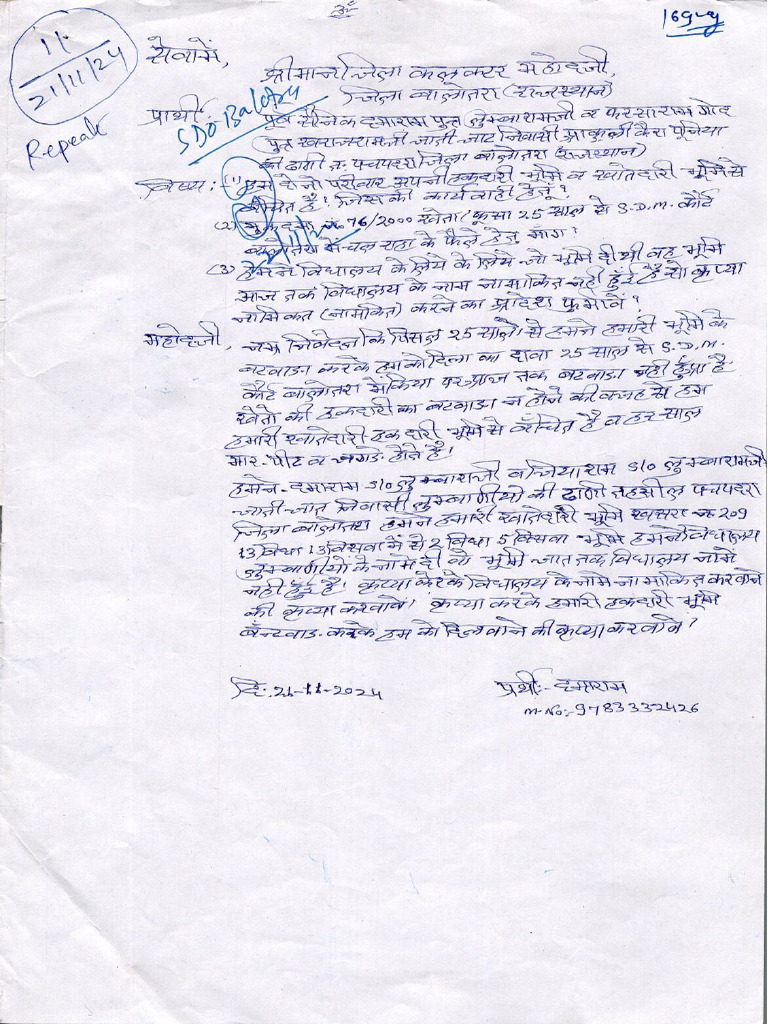 ॐ
16 gwy
11
21/11/24
Repeat
सेवामें,
श्रीमान जिला कलक्टर महोदजी,
जिला बालोतरा (राजस्थान)
SDO Balotra
प्रार्थी:
पूर्व सैनिक दमाराम पुत्र लुम्बारामजी व फरसाराम गोद
पुत्र खराजरामजी जाती जाट निवासी आकली बेरा पूनिया
की ढाणी त. पचपदरा जिला बालोतरा (राजस्थान)
विषय:- (1) हम दोनो परीवार अपनी हकदारी भूमि व खातेदारी भूमि से
वंचित है! जिस की कार्यवाही हेतू?
(2) मुकदमा न. 76/2000 खेता/ 25 साल से S.D.M. कोर्ट
बालोतरा में चल रहा के फैसले हेतु माँग?
(3) हमने विधालय के लिये के लिये जो भूमि दी थी वह भूमि
आज तक विधालय के नाम नामाकित नही हुई है सो कृप्या
नामिकत (नामकित) करने का आदेश फरमावें?
महोदजी, नम्र निवेदन कि पिछले 25 सालो से हमने हमारी भूमि के
बटवाडा करके हमको दिला का दावा 25 साल से S.D.M.
कोर्ट बालोतरा में किया पर आज तक बटवाडा नही हुआ है
खेतो की हकदारी का बटवाडा न होने की वजह से हम
हमारी खातेदारी हकदारी भूमि से वंचित है व हर साल
मार-पीट व झगडे होते है!
हमने- दमाराम S/o लुम्बारामजी व जियाराम S/o लुम्बारामजी
जाती जाट निवासी लुम्बाणीयो की ढाणी तहसील पचपदरा
जिला बालोतरा हमने हमारी खातेदारी भूमि खसरा न. 209
13 बिधा 13 विसवा में से 2 विधा 5 विसवा भूमि हमने विधालय
लुम्बाणीयों के नामे दी वो भूमि आज तक विधालय नामे
नही हुई है! कृप्या करके विधालय के नामे नामाकित करवाने
की कृप्या करवावे! कृप्या करके हमारी हकदारी भूमि
बँन्टवाड करके हम को दिलवाने की कृप्या करवावे?
दि: 21-11-2024
प्रार्थी:- दमाराम
M-No:- 9783332426